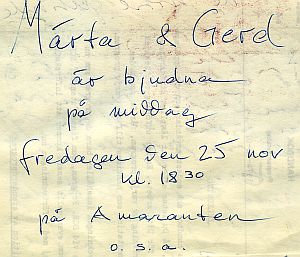 Märta & Gerd
är bjudna
på middag
fredagen den 25 nov
kl. 18 30
på Amaranten
o. s. a.